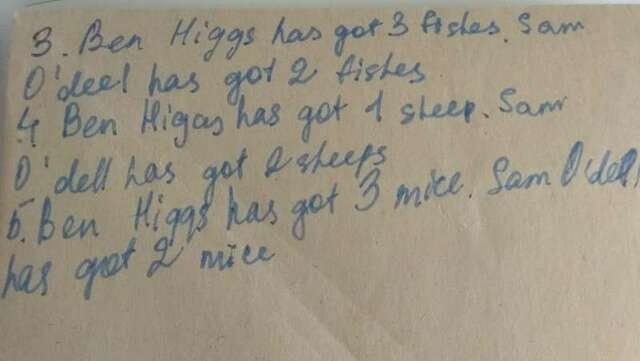 3. Ben Higgs has got 3 fishes. Sam
O'deel has got 2 fishes
4 Ben Higgs has got 1 sheep. Sam
O'dell has got 2 sheeps
5. Ben Higgs has got 3 mice. Sam O'dell
has got 2 mice